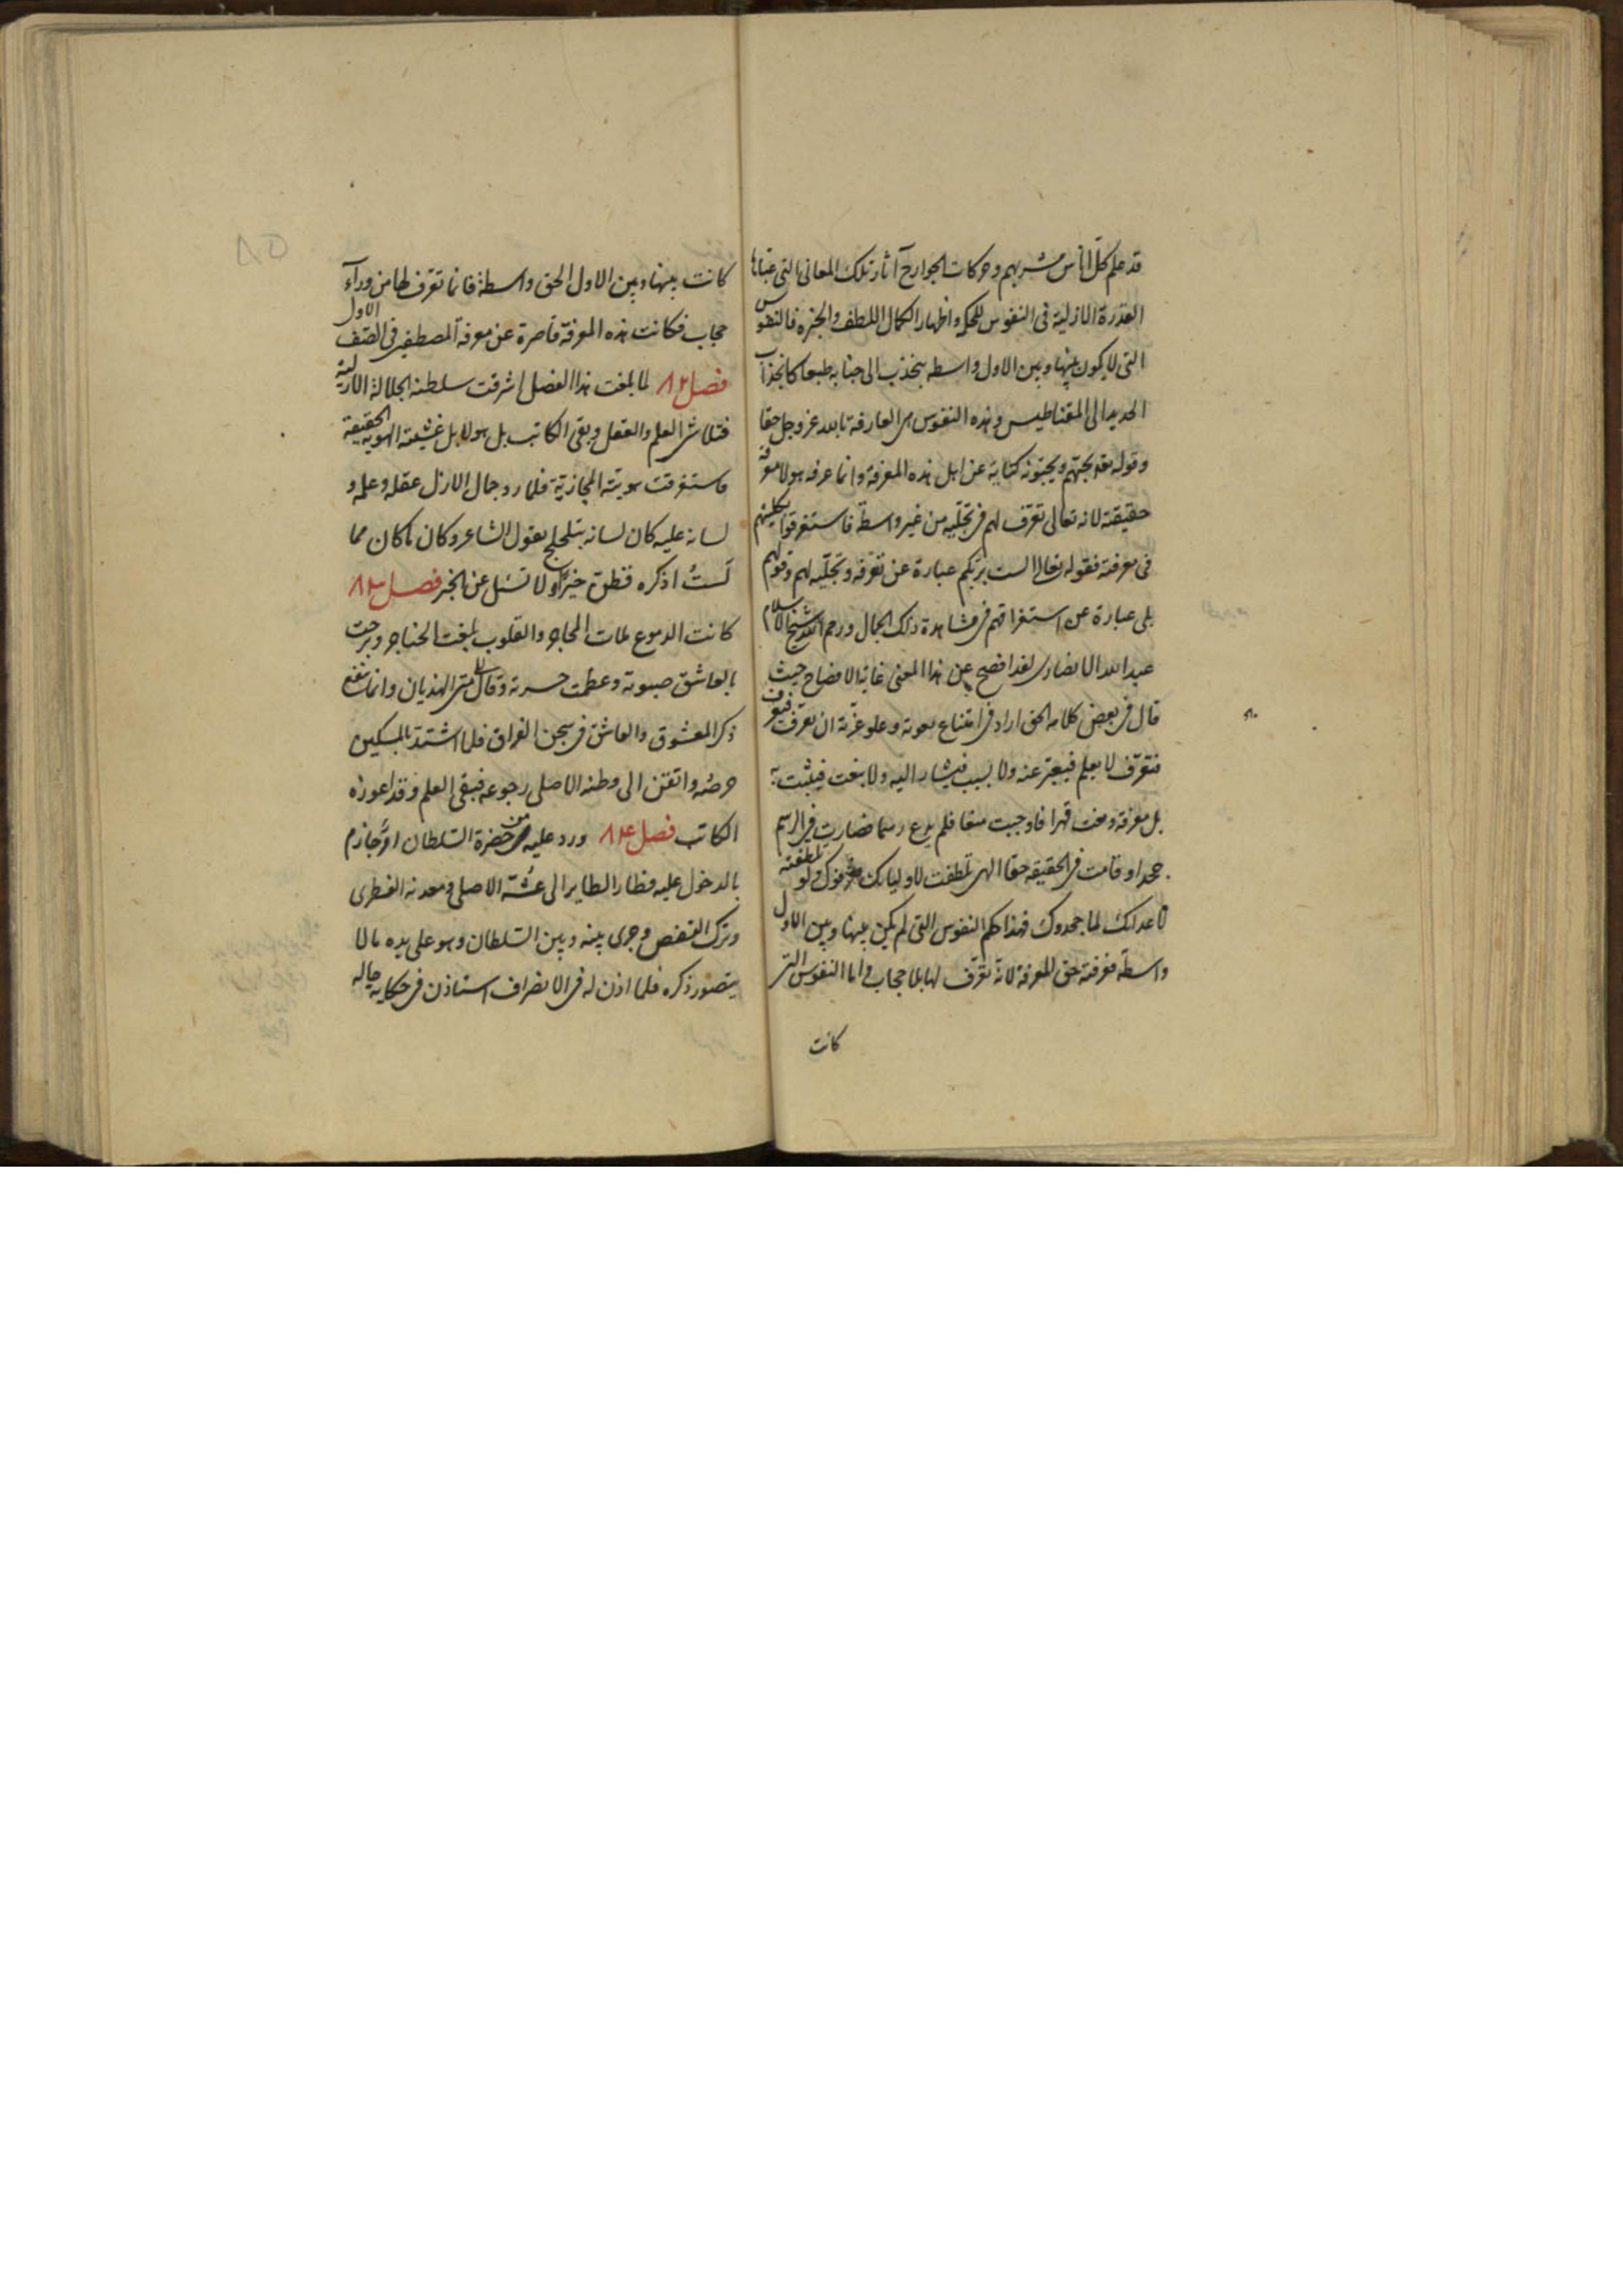 قد علم كلّ اناس مشربهم وحركات الجوارح آثار تلك المعانى التى عبّاها
القدرة الازلية فى النفوس للحكم واظهار الكمال اللطف والجبره فالنفوس
التى لا يكون بينها وبين الاول واسطه ينجذب الى جنابه طبعا كانجذاب
الحديد الى المقناطيس وهذه النفوس هى العارفة بالله عز وجل حقا
وقوله تعه يحبّهم ويحبّونه كناية عن اهل هذه المعرفة وانما عرفه هولا معرفة
حقيقته لانه تعالى تعرّف لهم فى تجلّيه من غير واسطة فاستغرقوا بكليتهم
فى معرفته فقوله تعالى الست بربّكم عبارة عن تعرّفه وتجلّيه لهم وقولهم
بلى عبارة عن استغراقهم فى مشاهدة ذلك الجمال ورحم الله شيخ الاسلام
عبد الله الانصارى لقد افصح عن هذا المعنى غاية الافصاح حيث
قال فى بعض كلامه الحق اراد فى امتناع نعوته وعلو عزّته ان يعرف فتعرف
فتعرّف لا بعلم فيعبّر عنه ولا بسبب فيشار اليه ولا بنعت فيثبت به
بل معرفة وقعت قهرا فاوجبت صعقا فلم يدع رسما فصارت فى الرسم
جحدا وقامت فى الحقيقه حقا الهى تلطفت لاوليائك فعرفوك ولو تلطفت
لاعدائك لما جحدوك فهذا حكم النفوس التى لم يكن بينها وبين الاول
واسطة فعرفته حق المعرفة لانه تعرّف لها بلا حجاب واما النفوس التى
كانت
كانت بينها وبين الاول الحق واسطة فانما تعرّف لها من ورآء
حجاب فكانت هذه المعرفة قاصرة عن معرفة المصطفين فى الصّف الاول
فصل ٨٢ لما بلغت هذا الفصل اشرقت سلطنة الجلالة الازلية
فتلاشى العلم والعقل وبقى الكاتب بل هو لا بل غشيته الهوية الحقيقية
فاستغرقت هويته المجازية فلما رد جمال الازل عقله وعلمه و
لسانه عليه كان لسانه يتلجلج بقول الشاعر وكان ما كان مما
لستُ اذكره فظنّ خيرًا ولا تسئل عن الخبر فصل ٨٣
كانت الدموع ملات المحاجر والقلوب بلغت الحناجر وبرحت
بالعاشق صبوته وعظمت حسرته وقال الى متى الهذيان وانما ينفع
ذكر المعشوق والعاشق فى سجن الفراق فلما اشتدّ بالمسكين
حرصُه واتفق الى وطنه الاصلى رجوعه فبقى العلم وقد اعوزه
الكاتب فصل ٨٤ ورد عليه من حضرة السّلطان امرٌ جازم
بالدخول عليه فطار الطاير الى عُشّه الاصلى ومعدنه الفطرى
وترك القفص وجرى بينه وبين السّلطان وهو على يده ما لا
يتصور ذكره فلما اذن له فى الانصراف استاذن فى حكاية حاله